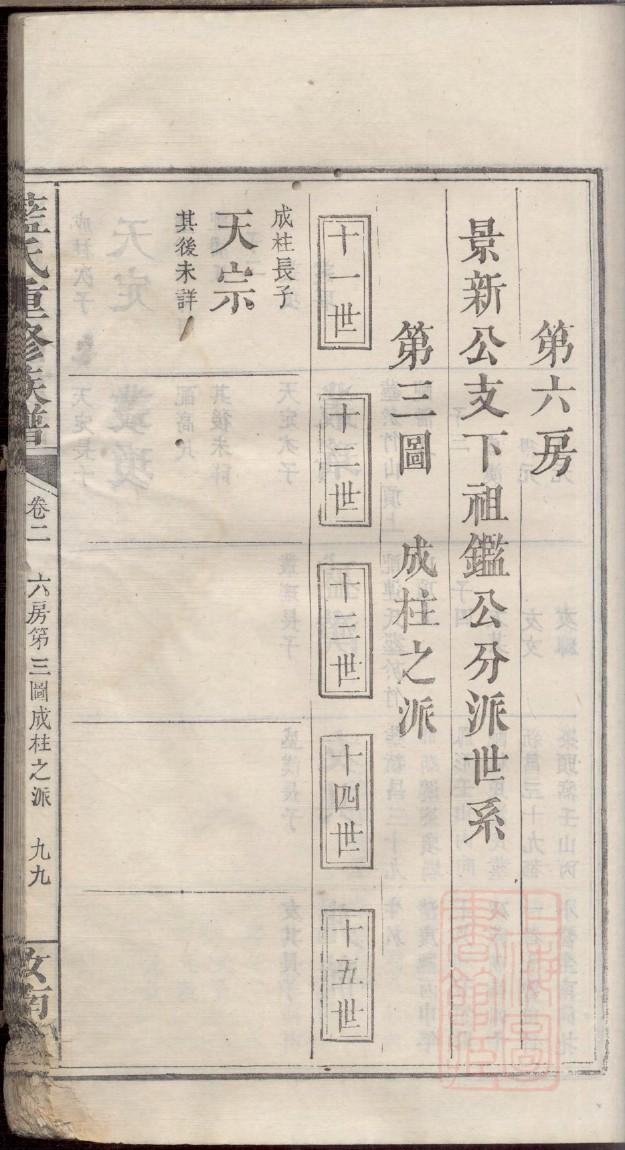 第六房
景新公支下祖鑑公分派世系
第三圖 成柱之派
十一世
十二世
十三世
十四世
十五世
成柱長子
天宗
其後未詳
藍氏重修族譜
卷二
六房第三圖成柱之派
九九
汝南